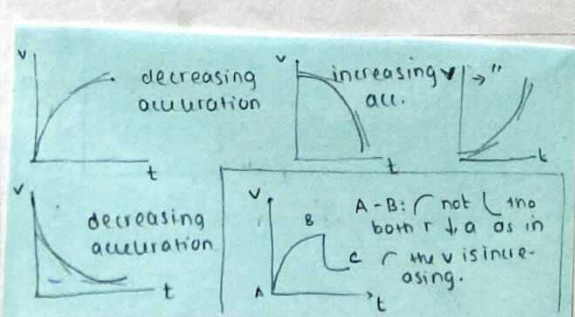 v
decreasing
acceleration
t
v
increasing
acc.
t
v
→ "
t
v
decreasing
acceleration
t
v
A
B
C
t
A-B: not tho
both r ↓ a as in
the v is incre-
asing.